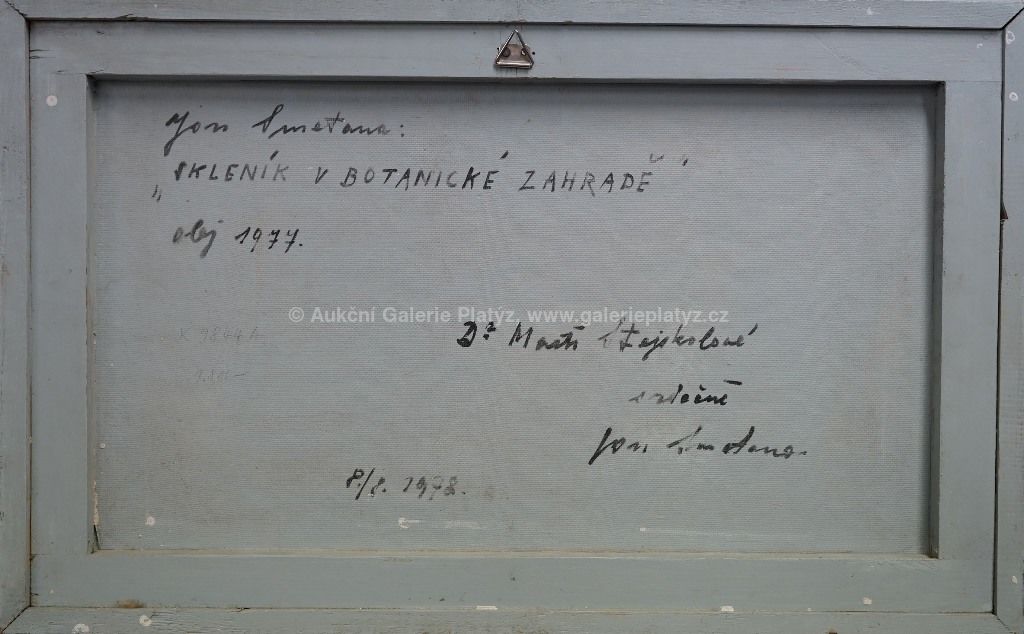 Jan Smetana:
„SKLENÍK V BOTANICKÉ ZAHRADĚ"
olej 1977.
© Aukční Galerie Platýz, www.galerieplatyz.cz
Dr Martě Stejskalové
srdečně
Jan Smetana.
8./8. 1978.